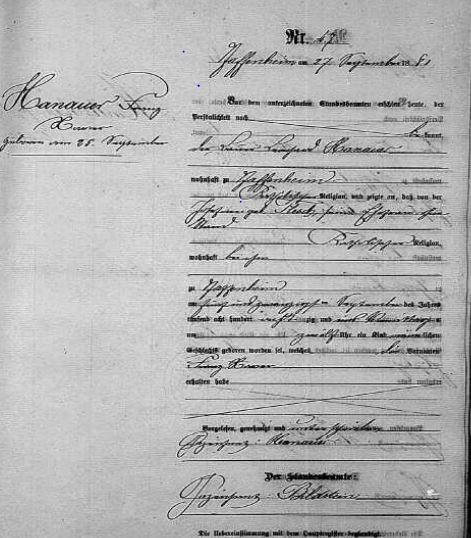 Hanauer Franz
Xaver
geboren am 25. September
Nr. 47
Pfaffenheim am 27. September 1881
Vor dem unterzeichneten Standesbeamten erschien heute, der
Persönlichkeit nach
be kannt,
der Hanauer
wohnhaft zu Pfaffenheim
Katholischer Religion, und zeigte an, daß von der
geb. seiner Ehefrau ohne
Stand
Katholischer Religion,
wohnhaft bei ihm
zu Pfaffenheim
am fünf und zwanzigsten September des Jahres
tausend acht hundert achtzig und eins
um zwölf Uhr ein Kind männlichen
Geschlechts geboren worden sei, welches die Vornamen
Franz Xaver
erhalten habe
Vorgelesen, genehmigt und unterschrieben
Gezeichnet: Hanauer
Der Standesbeamte:
Gezeichnet:
Die Uebereinstimmung mit dem Hauptregister beglaubigt.